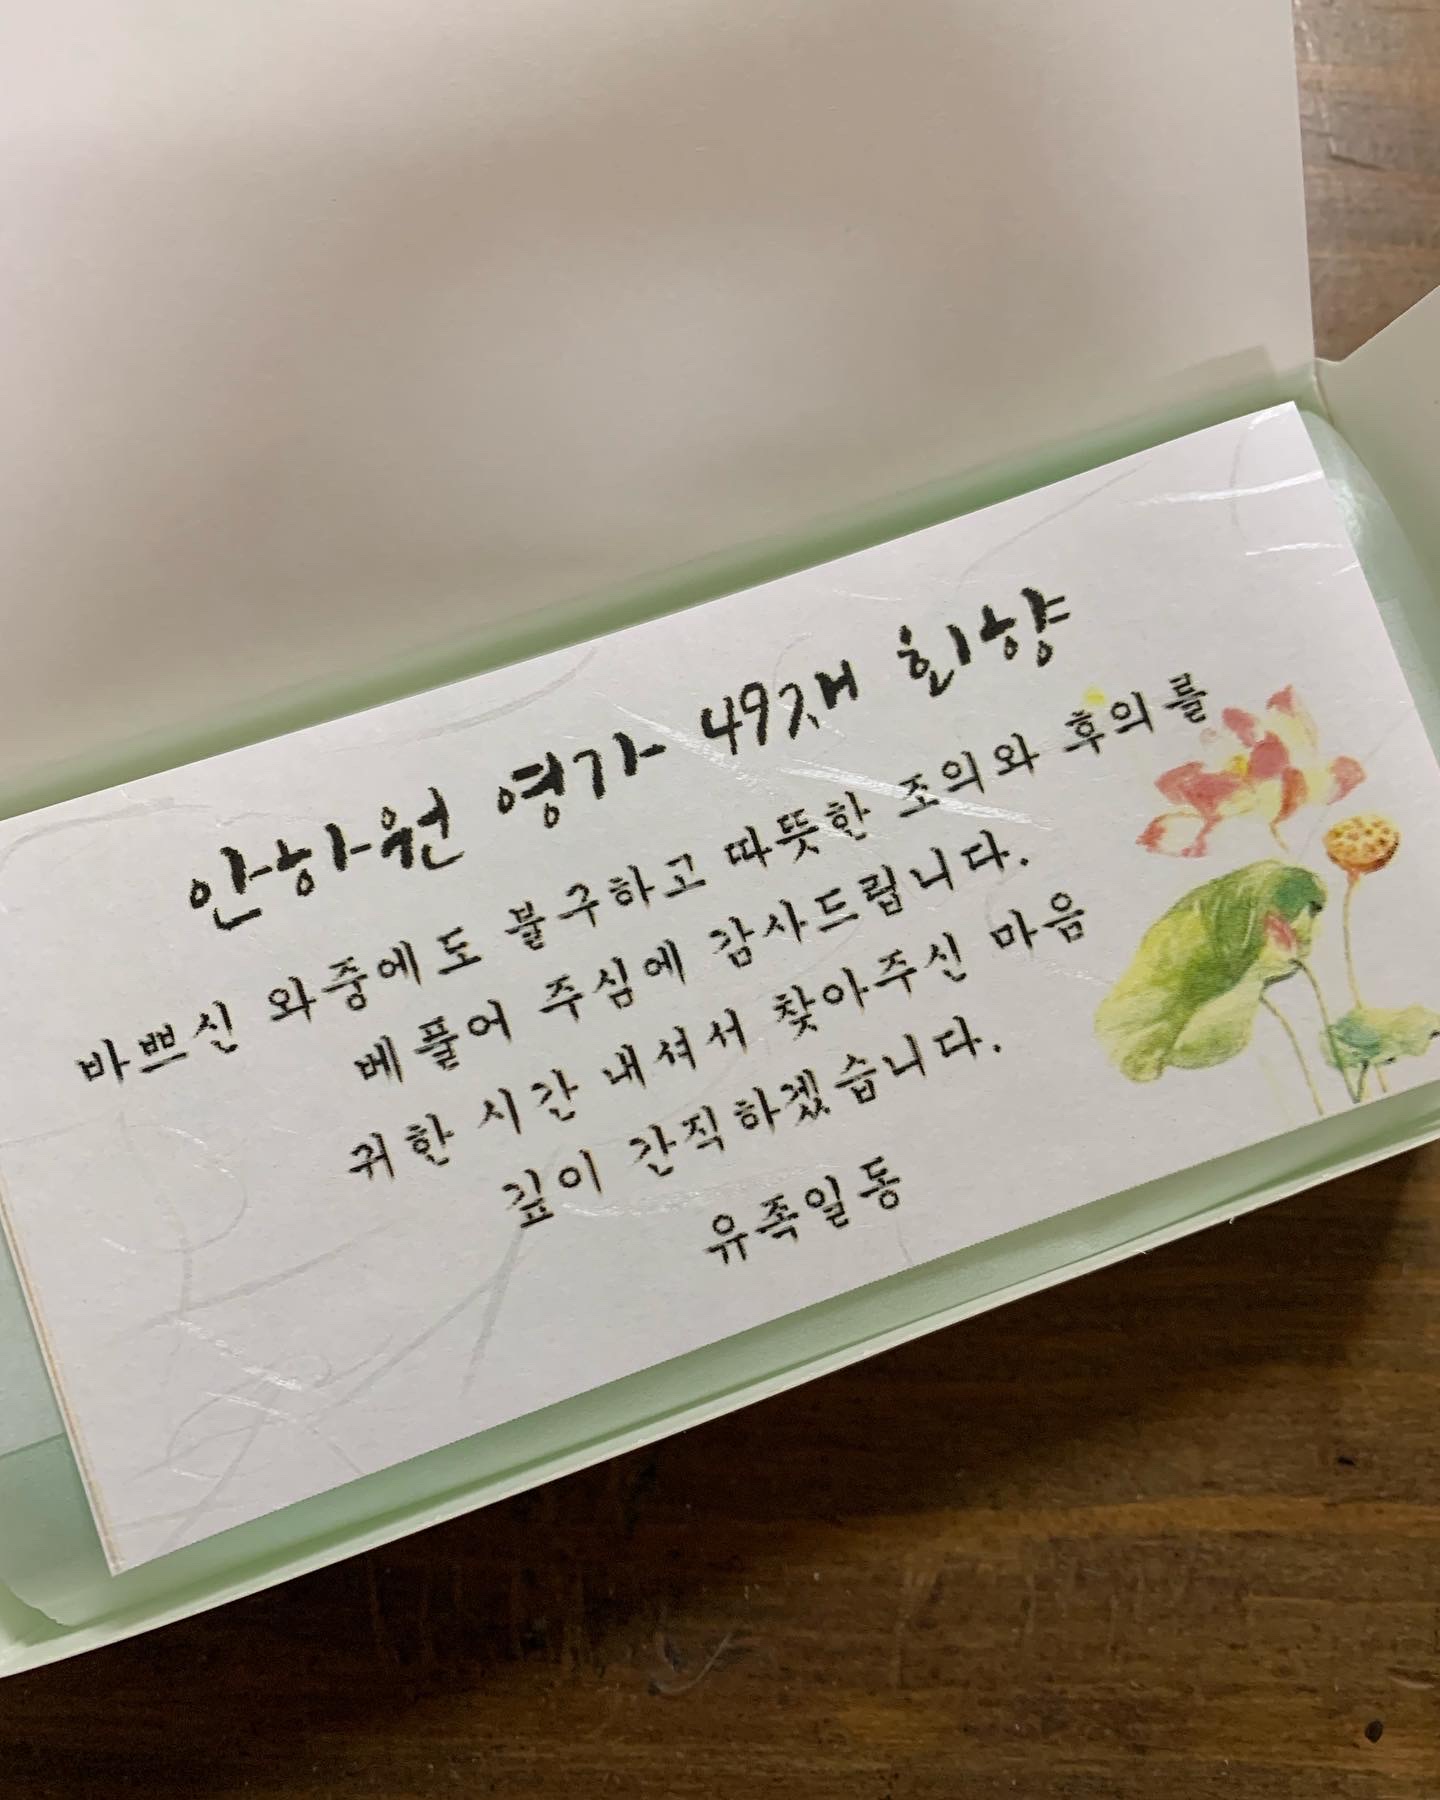 안하원 영가 49재 회향
바쁘신 와중에도 불구하고 따뜻한 조의와 후의를
베풀어 주심에 감사드립니다.
귀한 시간 내셔서 찾아주신 마음
깊이 간직하겠습니다.
유족일동